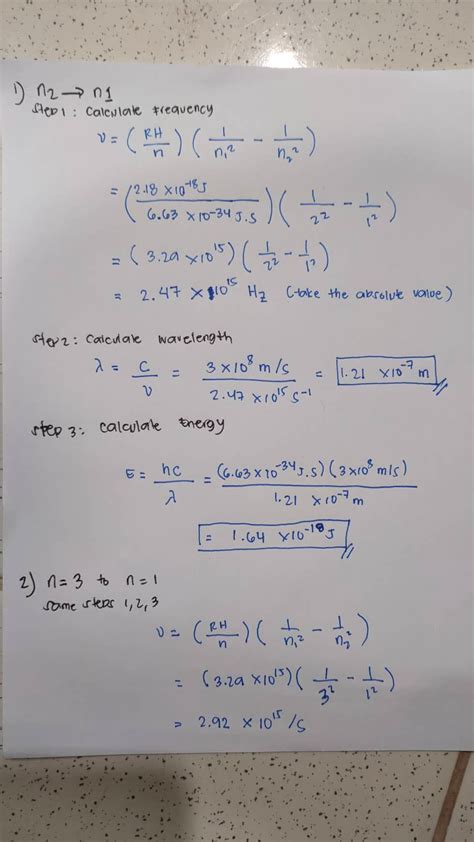 1) n2 → n1
Step 1: Calculate Frequency
ν = (RH/n) (1/n₁² - 1/n₂²)
= (2.18 × 10⁻¹⁸ J / 6.63 × 10⁻³⁴ J.S) (1/2² - 1/1²)
= (3.29 × 10¹⁵) (1/2² - 1/1²)
= 2.47 × 10¹⁵ Hz (take the absolute value)
Step 2: Calculate wavelength
λ = C/ν = 3 × 10⁸ m/s / 2.47 × 10¹⁵ s⁻¹ = 1.21 × 10⁻⁷ m
Step 3: Calculate Energy
E = hc/λ = (6.63 × 10⁻³⁴ J.S) (3 × 10⁸ m/s) / 1.21 × 10⁻⁷ m
= 1.64 × 10⁻¹⁸ J
2) n = 3 to n = 1
same steps 1, 2, 3
ν = (RH/n) (1/n₁² - 1/n₂²)
= (3.29 × 10¹⁵) (1/3² - 1/1²)
= 2.92 × 10¹⁵ /s